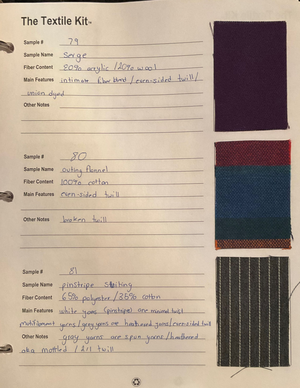 The Textile Kit™
Sample # 79
Sample Name Serge
Fiber Content 80% acrylic / 20% wool
Main Features intimate fiber blend / even-sided twill /
union dyed
Other Notes
Sample # 80
Sample Name outing flannel
Fiber Content 100% cotton
Main Features even-sided twill
Other Notes broken twill
Sample # 81
Sample Name pinstripe suiting
Fiber Content 65% polyester / 35% cotton
Main Features white yarns (pinstripe) are minimal twist
multifilament yarns / gray yarns are heathered yarns / even-sided twill
Other Notes gray yarns are spun yarns / heathered
aka mottled / 2/2 twill